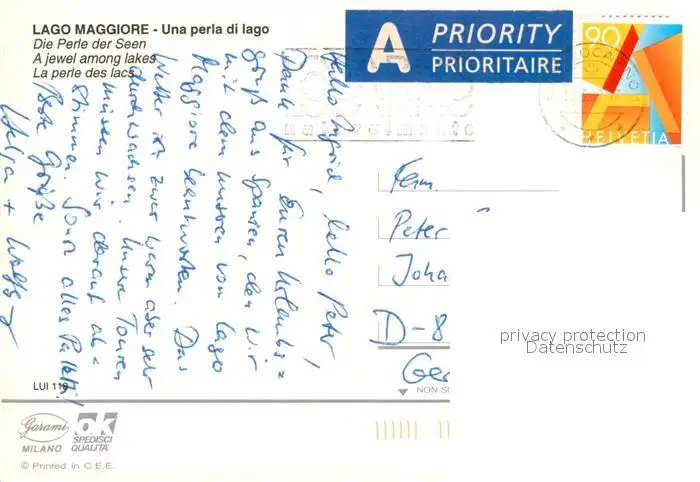 LAGO MAGGIORE - Una perla di lago
Die Perle der Seen
A jewel among lakes
La perle des lacs
A PRIORITY
PRIORITAIRE
90
HELVETIA
Hallo Ingrid, hallo Peter,
Dank für Euren Urlaubs=
gruß aus Spanien, den wir
mit dem unseren vom Lago
Maggiore beantworten. Das
Wetter ist zwar warm aber sehr
durchwachsen. Unsere Touren
müssen wir darauf ab=
stimmen. Sonst alles Paletti!
Beste Grüße
Fam.
Peter
Joha
D-8
Ger
NON S
privacy protection
Datenschutz
LUI 118
Garami
MILANO
ok
SPEDISCI
QUALITÀ
© Printed in C.E.E.